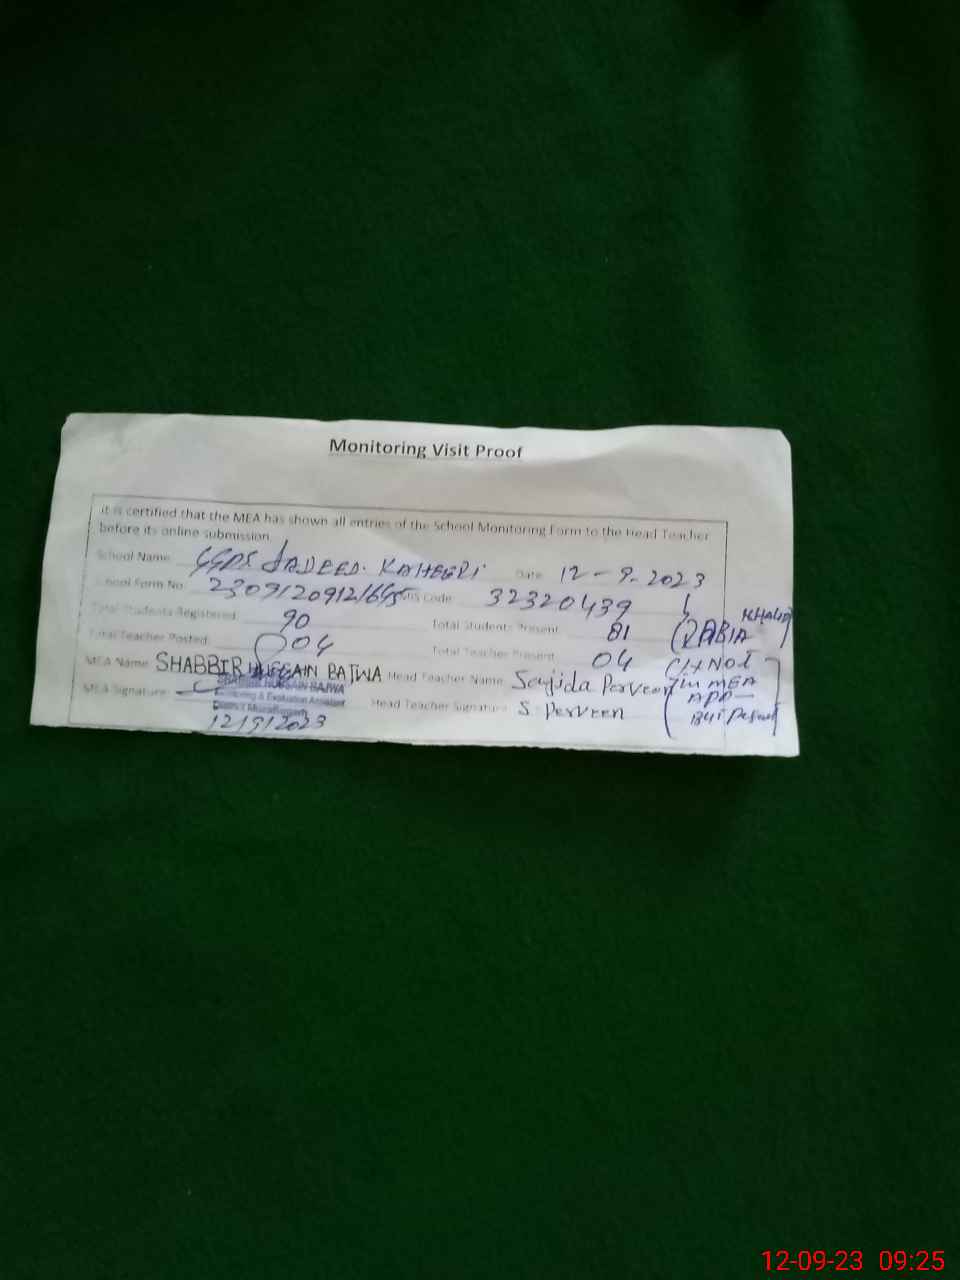 Monitoring Visit Proof
It is certified that the MEA has shown all entries of the School Monitoring Form to the Head Teacher
before its online submission
School Name GGPS JADEED Date 12-9-2023
School Form No. EMIS Code: 32320439
Total Students Registered: 90 Total Students Present 81 (RABIA KHALID)
Total Teacher Posted: 04 Total Teacher Present 04 Not
MEA Name SHABBIR HUSSAIN BAJWA Head Teacher Name: Sajida Perveen in MEA
SHABBIR HUSSAIN BAJWA APP
MEA Signature Monitoring & Evaluation Assistant Head Teacher Signature S. Perveen But
District Muzaffargarh
12/9/2023
12-09-23 09:25